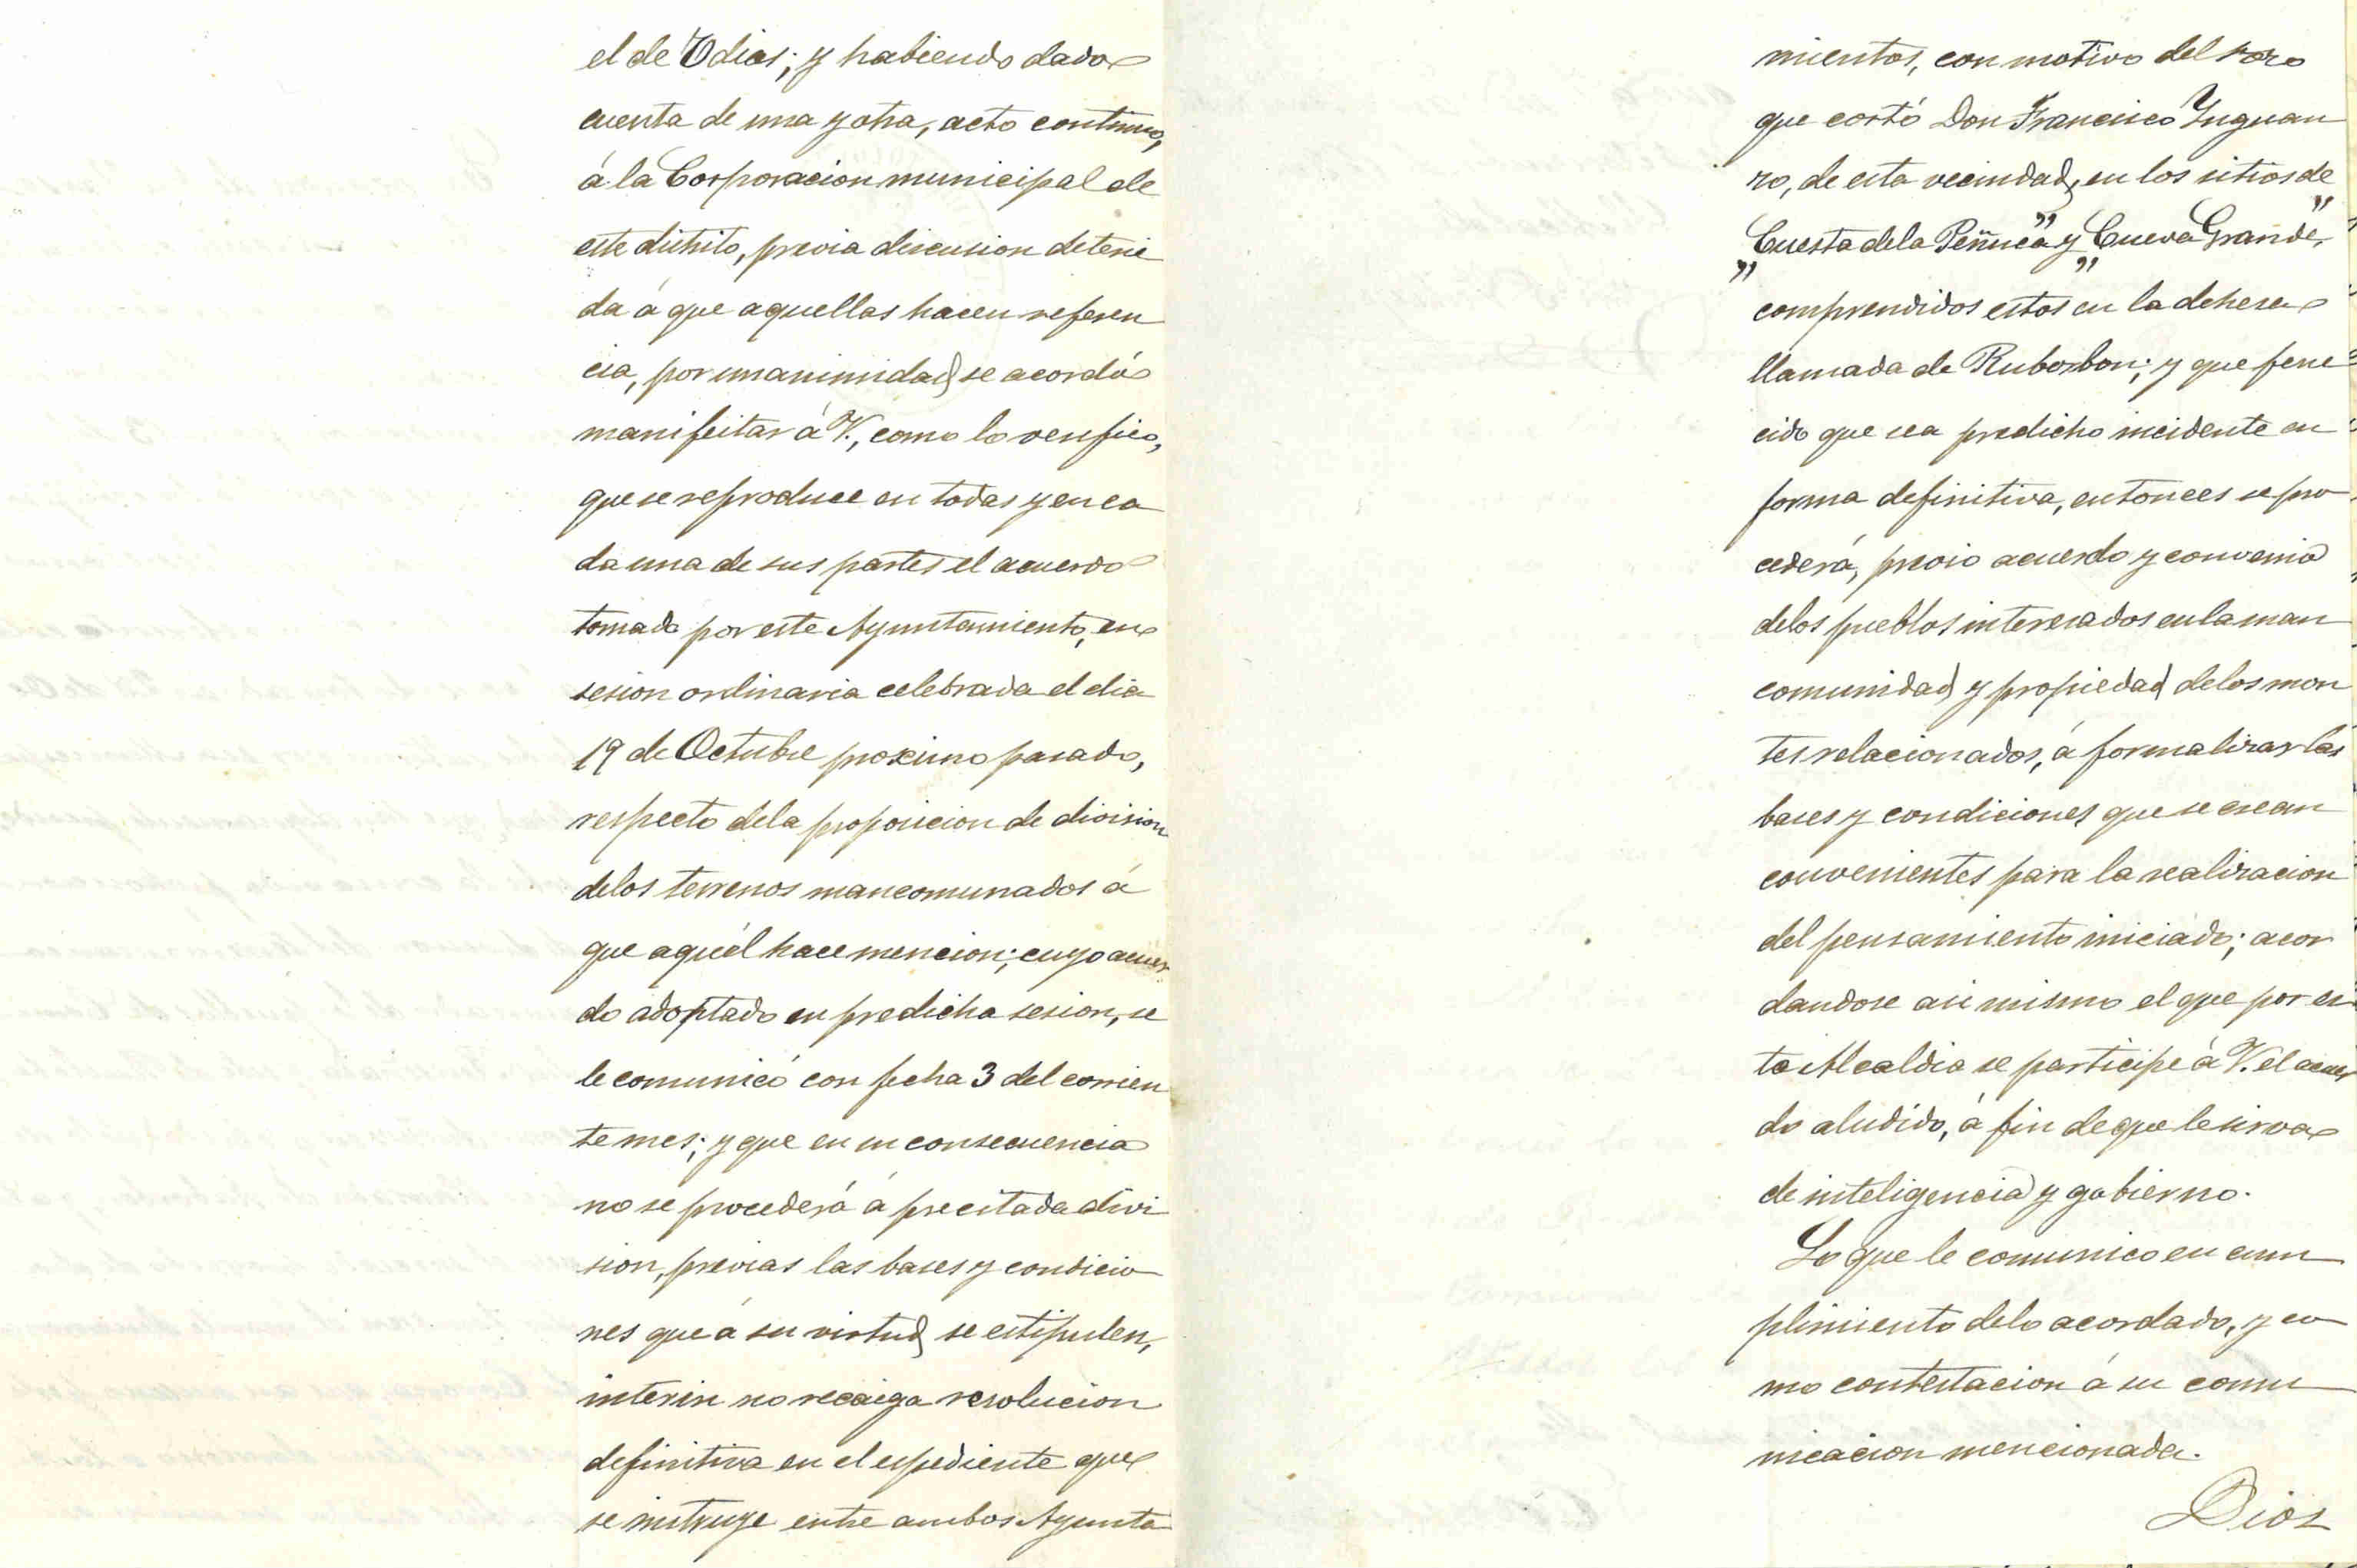 el de 8 dias; y habiendo dado
cuenta de una y otra, acto continuo,
á la Corporacion municipal de
este distrito, previa discusion deteni
da á que aquellas hacen referen
cia, por unanimidad se acordó
manifestar á V., como lo verifico,
que se reproduce en todas y en ca
da una de sus partes el acuerdo
tomado por este Ayuntamiento, en
sesion ordinaria celebrada el dia
19 de Octubre proximo pasado,
respecto de la proposicion de division
de los terrenos mancomunados á
que aquél hace mencion; cuyo acuer
do adoptado en predicha sesion, se
le comunicó con fecha 3 del corrien
te mes; y que en su consecuencia
no se procederá á precitada divi
sion, previas las bases y condicio
nes que á su virtud se estipulen,
interin no recaiga resolucion
definitiva en el espediente que
se instruye entre ambos Ayunta
mientos, con motivo del rozo
que cortó Don Francisco Ynguan
zo, de esta vecindad, en los sitios de
"Cuesta de la Peñuca" y "Cueva Grande",
comprendidos estos en la dehesa
llamada de Ruborbon; y que fene
cido que sea predicho incidente en
forma definitiva, entonces se pro
cederá, previo acuerdo y convenio
de los pueblos interesados en la man
comunidad y propiedad de los mon
tes relacionados, á formalizar las
bases y condiciones que se crean
convenientes para la realizacion
del pensamiento iniciado; acor
dandose asi mismo el que por es
ta Alcaldia se participe á V. el acuer
do aludido, á fin de que le sirva
de inteligencia y gobierno.
Lo que le comunico en cum
plimiento de lo acordado, y co
mo contestacion á su comu
nicacion mencionada.
Dios